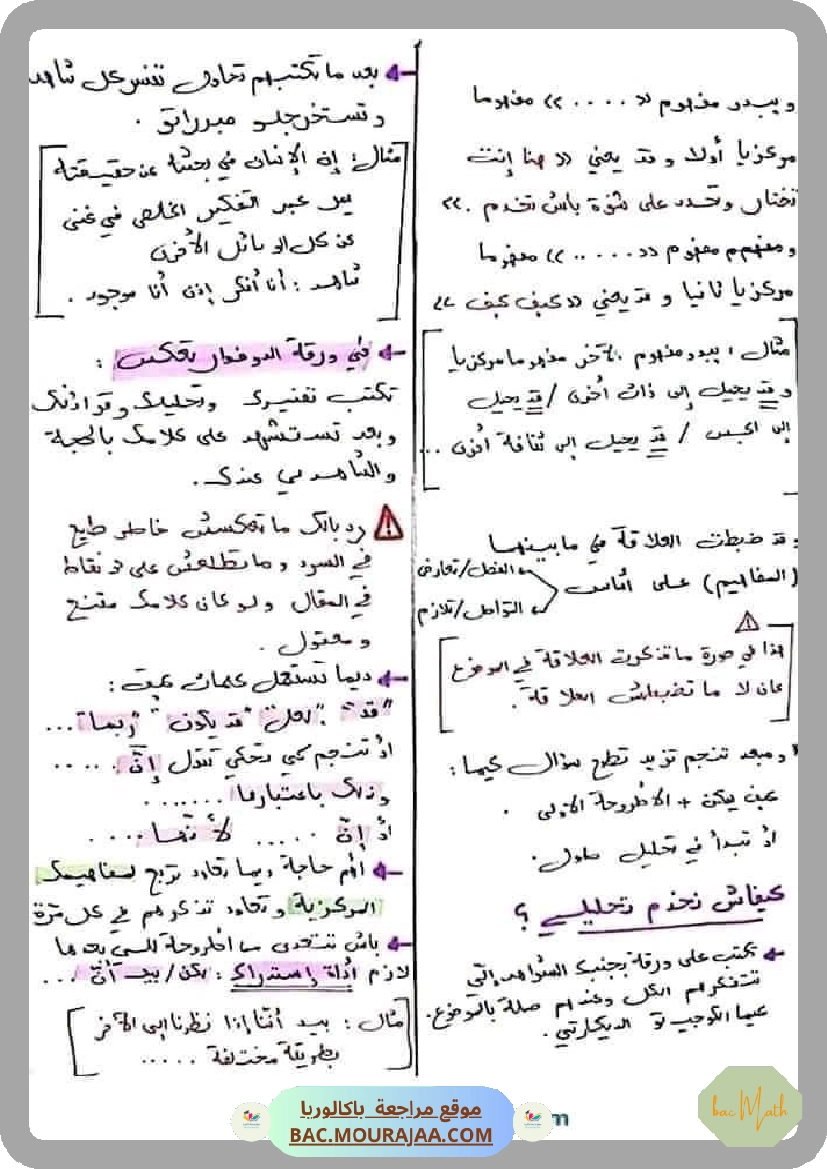 ويبدو مفهوم « .... » مفهوما
مركزيا أولا وقد يعني « هنا إنت
تختار وتحدد على شنوة باش تخدم. »
ومفهوم « ..... » مفهوما
مركزيا ثانيا وقد يعني « كيف كيف »
مثال: يبدو مفهوم الآخر مفهوما مركزيا
وقد يحيل إلى ذات أخرى / قد يحيل
إلى الجنس / قد يحيل إلى ثقافة أخرى ...
وقد ضبطت العلاقة في ما بينها
(المفاهيم) على أساس
الفصل/تعارض
التواصل/تلازم
هذا في صورة ما تذكرت العلاقة في الموضوع
كان لا ما تضبطش العلاقة.
ومبعد تنجم تزيد تطرح سؤال كيما:
كيف يمكن + الأطروحة الأولى.
ثم تبدأ في تحليل مطول.
كيفاش نخدم تحليلي؟
تكتب على ورقة بجنبك الشواهد إلّي
تتذكرهم الكل وعندهم صلة بالموضوع.
كيما الكوجيتو الديكارتي.
بعد ما تكتبهم تحاول تفسر كل شاهد
وتستخرجلو مبرراتو.
مثال: إن الإنسان في بحثه عن حقيقته
يمر عبر التفكير الخالص في غنى
عن كل الوسائل الأخرى
شاهد: أنا أفكر إذن أنا موجود.
في ورقة الموضوع تعكس:
تكتب تفسيرك وتحليلك وقراءتك
وبعد تستشهد على كلامك بالحجة
والشاهد لي عندك.
رد بالك ما تعكسش خاطر طيح
في السرد وما تطلعش على نقاط
في المقال ولو كان كلامك مقنع
ومعقول.
ديما تستعمل كلمات كيف:
"قد" "لعل" "قد يكون" "ربما" ...
ثم تنجم كي تحكي تقول إنّ .....
وذلك باعتبارها ......
ثم إنّ ..... لأنّها ....
أهم حاجة ديما تعاود ترجع لمفاهيمك
المركزية وتعاود تذكرهم في كل مرة
باش تتعدى من أطروحة للي بعدها
لازم أداة إستدراك: لكن/بيد أنّ ...
مثال: بيد أننا إذا نظرنا إلى الآخر
بطريقة مختلفة .....
موقع مراجعة باكالوريا
BAC.MOURAJAA.COM
bac Math